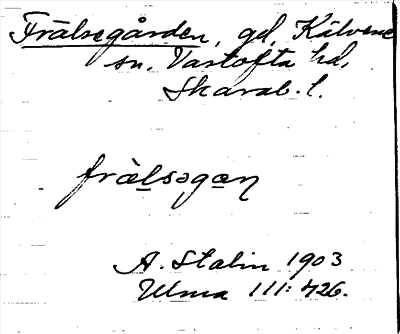 Frälsegården, gd, Kälvene
sn. Vartofta hd,
Skarab. l.
frälsəgan
A. Stalin 1903
Ulma 111: 426.